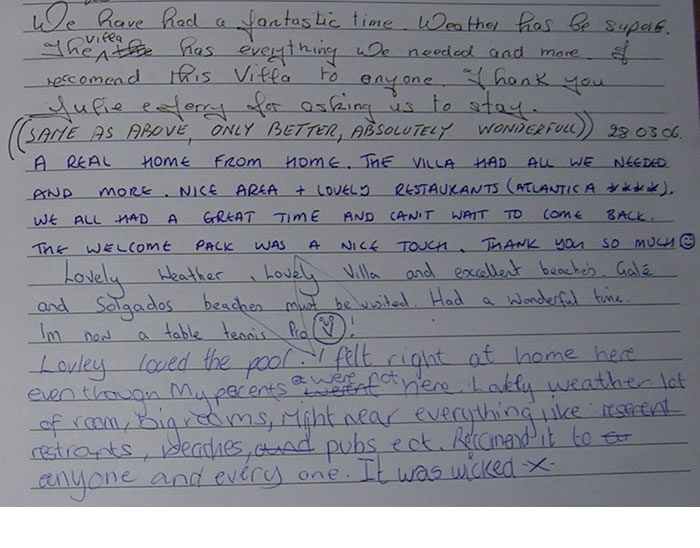 We have had a fantastic time. Weather has be superb.
The villa has everything we needed and more. I
reccomend this Villa to anyone. Thank you
Julie & Terry for asking us to stay.
((SAME AS ABOVE, ONLY BETTER, ABSOLUTELY WONDERFULL)) 28 03 06.
A REAL HOME FROM HOME. THE VILLA HAD ALL WE NEEDED
AND MORE. NICE AREA + LOVELY RESTAURANTS (ATLANTICA ****).
WE ALL HAD A GREAT TIME AND CAN'T WAIT TO COME BACK.
THE WELCOME PACK WAS A NICE TOUCH. THANK YOU SO MUCH ☺
Lovely Weather, Lovely Villa and excellent beaches. Galé
and Solgados beaches must be visited. Had a wonderful time.
Im now a table tennis Pro !
Lovley loved the pool. I felt right at home here
even though My perents were not here. Lovley weather lot
of room, big rooms, right near everything like
restrants, beaches, pubs ect. Reccmend it to
anyone and every one. It was wicked -x-